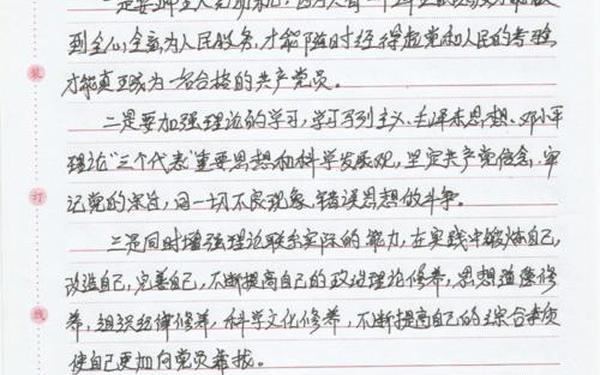 一是要端正入党动机，因为只有一个正确的动机才能做
到全心全意为人民服务，才能随时经得起党和人民的考验
才能真正成为一名合格的共产党员。
二是要加强理论的学习，学习马列主义、毛泽东思想、邓小平
理论"三个代表"重要思想和科学发展观，坚定共产党信念，牢
记党的宗旨，同一切不良现象、错误思想做斗争。
三是同时增强理论联系实际的能力，在实践中锻炼自己，
改造自己，完善自己，不断提高自己的政治理论修养，思想道德修
养，组织纪律修养，科学文化修养，不断提高自己的综合素质
使自己更加向党员靠拢。
装
打
线